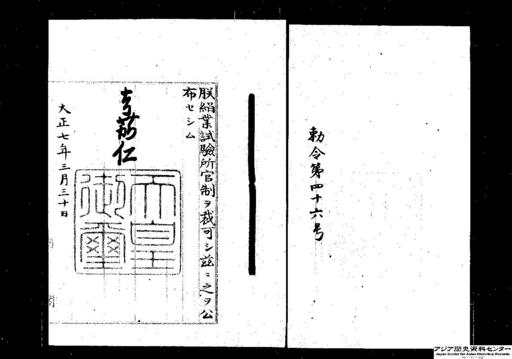 勅令第四十六号
朕絹業試験所官制ヲ裁可シ茲ニ之ヲ公
布セシム
嘉仁
天皇
御璽
大正七年三月三十日
アジア歴史資料センター
Japan Center for Asian Historical Records